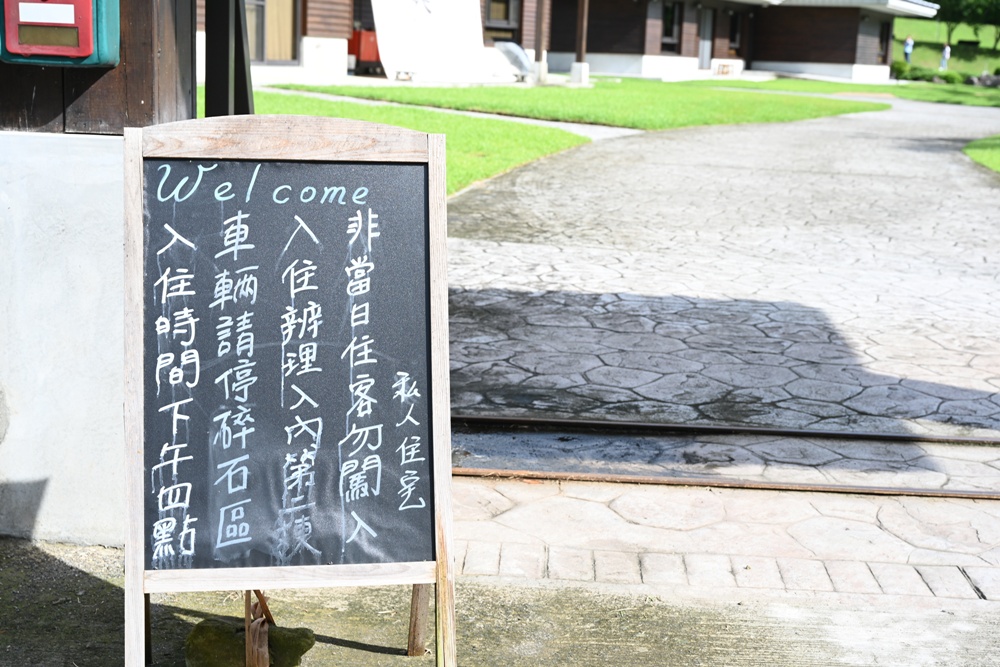 Welcome
私人住宅
非當日住客勿闖入
入住辨理入內第二棟
車輛請停碎石區
入住時間下午四點